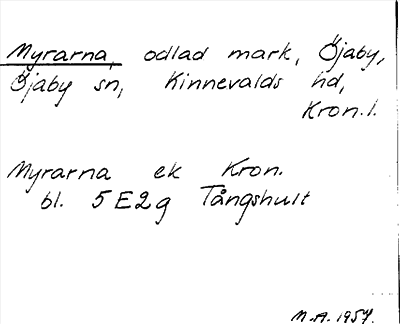 Myrarna, odlad mark, Öjaby,
Öjaby sn, Kinnevalds hd,
Kron.l.
Myrarna ek Kron.
bl. 5E2g Tångshult
M.A. 1957.